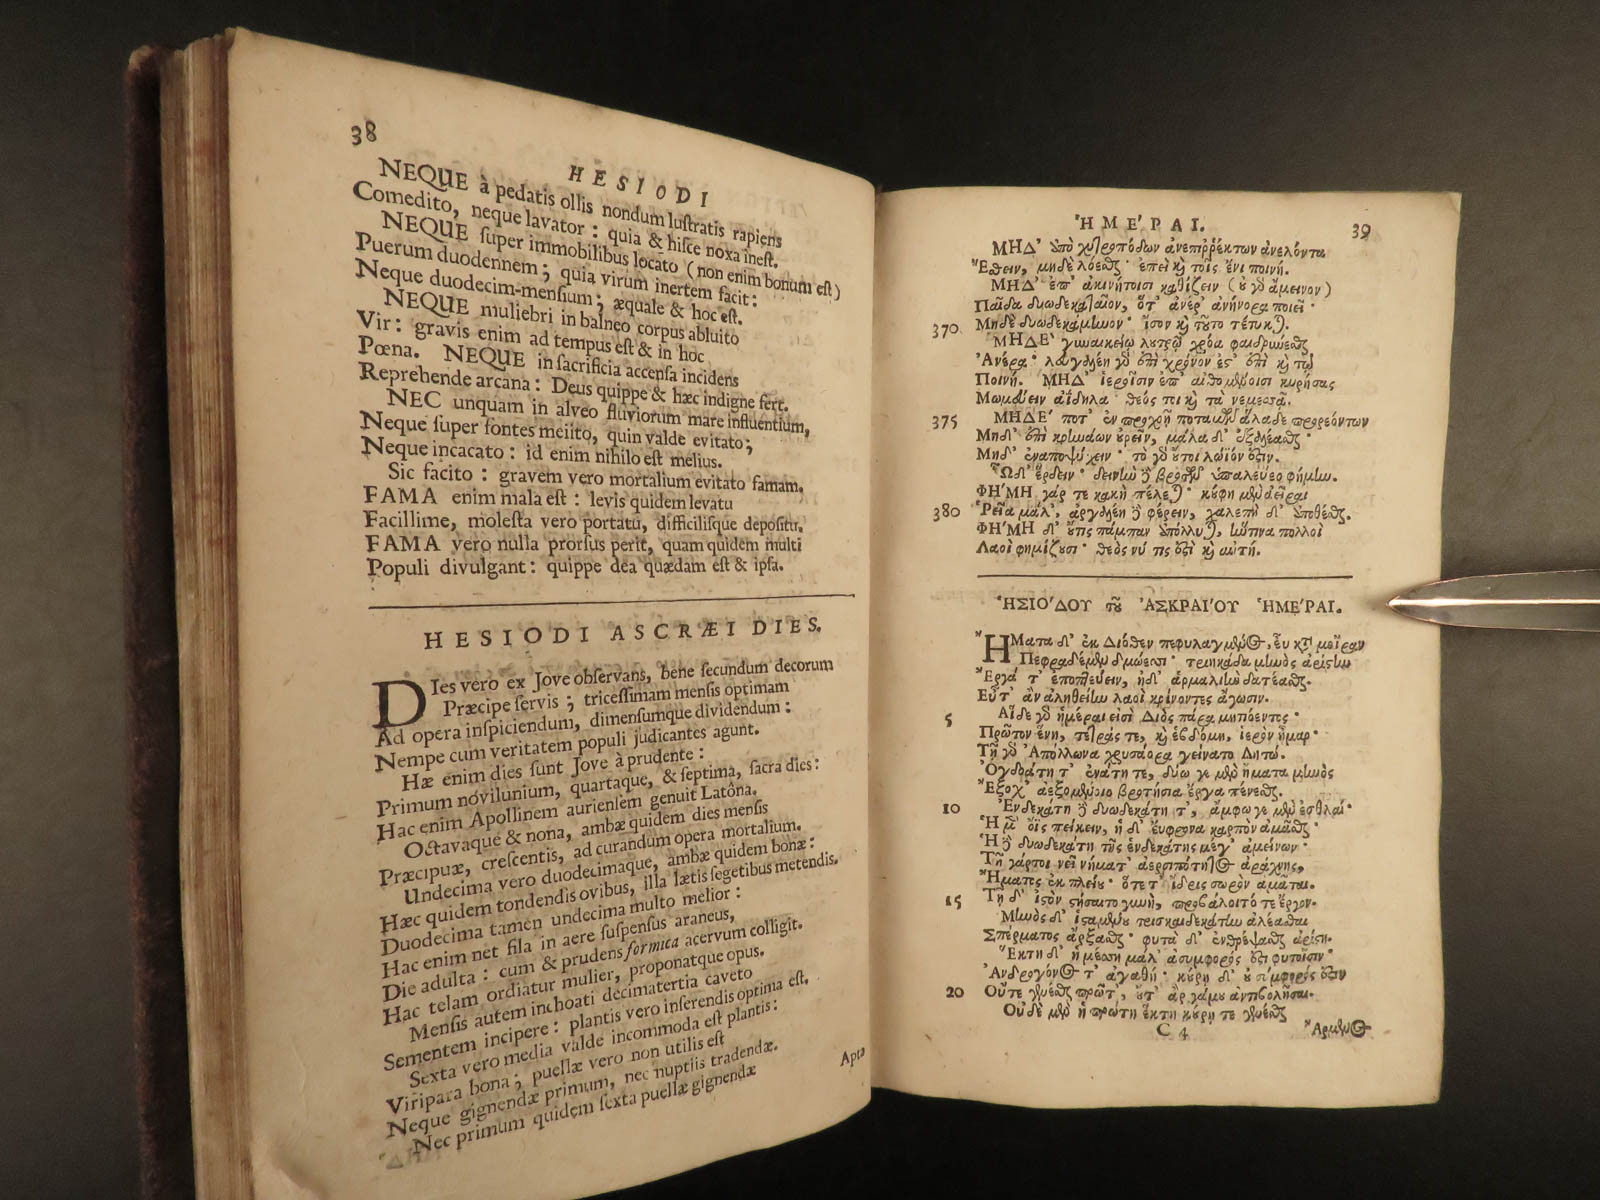 38
HESIODI
NEQUE à pedatis ollis nondum lustratis rapiens
Comedito, neque lavator : quia & hisce noxa inest.
NEQUE super immobilibus locato (non enim bonum est)
Puerum duodennem ; quia virum inertem facit :
Neque duodecim-mensium ; æquale & hoc est.
NEQUE muliebri in balneo corpus abluito
Vir : gravis enim ad tempus est & in hoc
Pœna. NEQUE in sacrificia accensa incidens
Reprehende arcana : Deus quippe & hæc indigne fert.
NEC unquam in alveo fluviorum mare influentium,
Neque super fontes meiito, quin valde evitato ;
Neque incacato : id enim nihilo est melius.
Sic facito : gravem vero mortalium evitato famam.
FAMA enim mala est : levis quidem levatu
Facillime, molesta vero portatu, difficilisque depositu.
FAMA vero nulla prorsus perit, quam quidem multi
Populi divulgant : quippe dea quædam est & ipsa.
HESIODI ASCRÆI DIES.
DIes vero ex Jove observans, bene secundum decorum
Præcipe servis ; tricessimam mensis optimam
Ad opera inspiciendum, dimensumque dividendum :
Nempe cum veritatem populi judicantes agunt.
Hæ enim dies sunt Jove à prudente :
Primum novilunium, quartaque, & septima, sacra dies :
Hac enim Apollinem auriensem genuit Latôna.
Octavaque & nona, ambæ quidem dies mensis
Præcipuæ, crescentis, ad curandum opera mortalium.
Undecima vero duodecimaque, ambæ quidem bonæ :
Hæc quidem tondendis ovibus, illa lætis segetibus metendis.
Duodecima tamen undecima multo melior :
Hac enim net fila in aere suspensus araneus,
Die adulta : cum & prudens formica acervum colligit.
Hac telam ordiatur mulier, proponatque opus.
Mensis autem inchoati decimatertia caveto
Sementem incipere : plantis vero inserendis optima est.
Sexta vero media valde incommoda est plantis :
Viripara bona ; puellæ vero non utilis est
Neque gignendæ primum, nec nuptiis tradendæ.
Nec primum quidem sexta puellæ gignendæ
Apta
ἩΜΕ'ΡΑΙ.
39
ΜΗΔ' ἀπὸ χυτροπόδων ἀνεπιρρέκτων ἀνελόντα
Ἔσθειν, μηδὲ λόεσθαι· ἐπεὶ καὶ τοῖς ἔνι ποινή.
ΜΗΔ' ἐπ' ἀκινήτοισι καθίζειν (οὐ γὰρ ἄμεινον)
Παῖδα δυωδεκαταῖον, ὅτ' ἀνέρ' ἀνήνορα ποιεῖ·
370 Μηδὲ δυωδεκάμηνον· ἴσον καὶ τοῦτο τέτυκται.
ΜΗΔΕ' γυναικείῳ λουτρῷ χρόα φαιδρύνεσθαι
Ἀνέρα· λευγαλέη γὰρ ἐπὶ χρόνον ἐστ' ἐπὶ καὶ τῷ
Ποινή. ΜΗΔ' ἱεροῖσιν ἐπ' αἰθομένοισι κυρήσας
Μωμεύειν ἀΐδηλα· θεός τοι καὶ τὰ νεμεσσᾷ.
375 ΜΗΔΕ' ποτ' ἐν προχοῇ ποταμῶν ἅλαδε προρεόντων
Μηδ' ἐπὶ κρηνάων οὐρεῖν, μάλα δ' ἐξαλέασθαι·
Μηδ' ἐναποψύχειν· τὸ γὰρ οὔτοι λώϊόν ἐστιν.
Ὧδ' ἔρδειν· δεινὴν δὲ βροτῶν ὑπαλεύεο φήμην.
ΦΗ'ΜΗ γάρ τε κακὴ πέλεται· κούφη μὲν ἀεῖραι
380 Ῥεῖα μάλ', ἀργαλέη δὲ φέρειν, χαλεπὴ δ' ἀποθέσθαι.
ΦΗ'ΜΗ δ' οὔτις πάμπαν ἀπόλλυται, ἥντινα πολλοὶ
Λαοὶ φημίζουσι· θεός νύ τις ἐστὶ καὶ αὐτή.
ἩΣΙΟ'ΔΟΥ τοῦ ἈΣΚΡΑΙ'ΟΥ ἩΜΕ'ΡΑΙ.
ἬΜατα δ' ἐκ Διόθεν πεφυλαγμένος, εὖ κατὰ μοῖραν
Πεφραδέμεν δμώεσσι· τριηκάδα μηνὸς ἀρίστην
Ἔργά τ' ἐποπτεύειν, ἠδ' ἁρμαλιὴν δατέασθαι.
Εὖτ' ἂν ἀληθείην λαοὶ κρίνοντες ἄγωσιν.
5 Αἵδε γὰρ ἡμέραι εἰσὶ Διὸς πάρα μητιόεντος·
Πρῶτον ἕνη, τετράς τε, καὶ ἑβδόμη, ἱερὸν ἦμαρ·
Τῇ γὰρ Ἀπόλλωνα χρυσάορα γείνατο Λητώ.
Ὀγδοάτη τ' ἐνάτη τε, δύω γε μὲν ἤματα μηνὸς
Ἔξοχ' ἀεξομένοιο βροτήσια ἔργα πένεσθαι.
10 Ἑνδεκάτη δὲ δυωδεκάτη τ', ἄμφω γε μὲν ἐσθλαί·
Ἡ μὲν ὄϊς πείκειν, ἡ δ' εὔφρονα καρπὸν ἀμᾶσθαι·
Ἡ δὲ δυωδεκάτη τῆς ἑνδεκάτης μέγ' ἀμείνων·
Τῇ γάρτοι νεῖ νήματ' ἀερσιπότητος ἀράχνης,
Ἤματος ἐκ πλείου· ὅτε τ' ἴδρις σωρὸν ἀμᾶται.
15 Τῇ δ' ἱστὸν στήσαιτο γυνή, προβάλοιτό τε ἔργον.
Μηνὸς δ' ἱσταμένου τρισκαιδεκάτην ἀλέασθαι
Σπέρματος ἄρξασθαι· φυτὰ δ' ἐνθρέψασθαι ἀρίστη.
Ἕκτη δ' ἡ μέσση μάλ' ἀσύμφορός ἐστι φυτοῖσιν·
Ἀνδρογόνος τ' ἀγαθή· κούρῃ δ' οὐ σύμφορός ἐστιν
20 Οὔτε γενέσθαι πρῶτ', οὔτ' ἂρ γάμου ἀντιβολῆσαι.
Οὐδὲ μὲν ἡ πρώτη ἕκτη κούρῃ τε γενέσθαι
C 4
Ἄρμενος